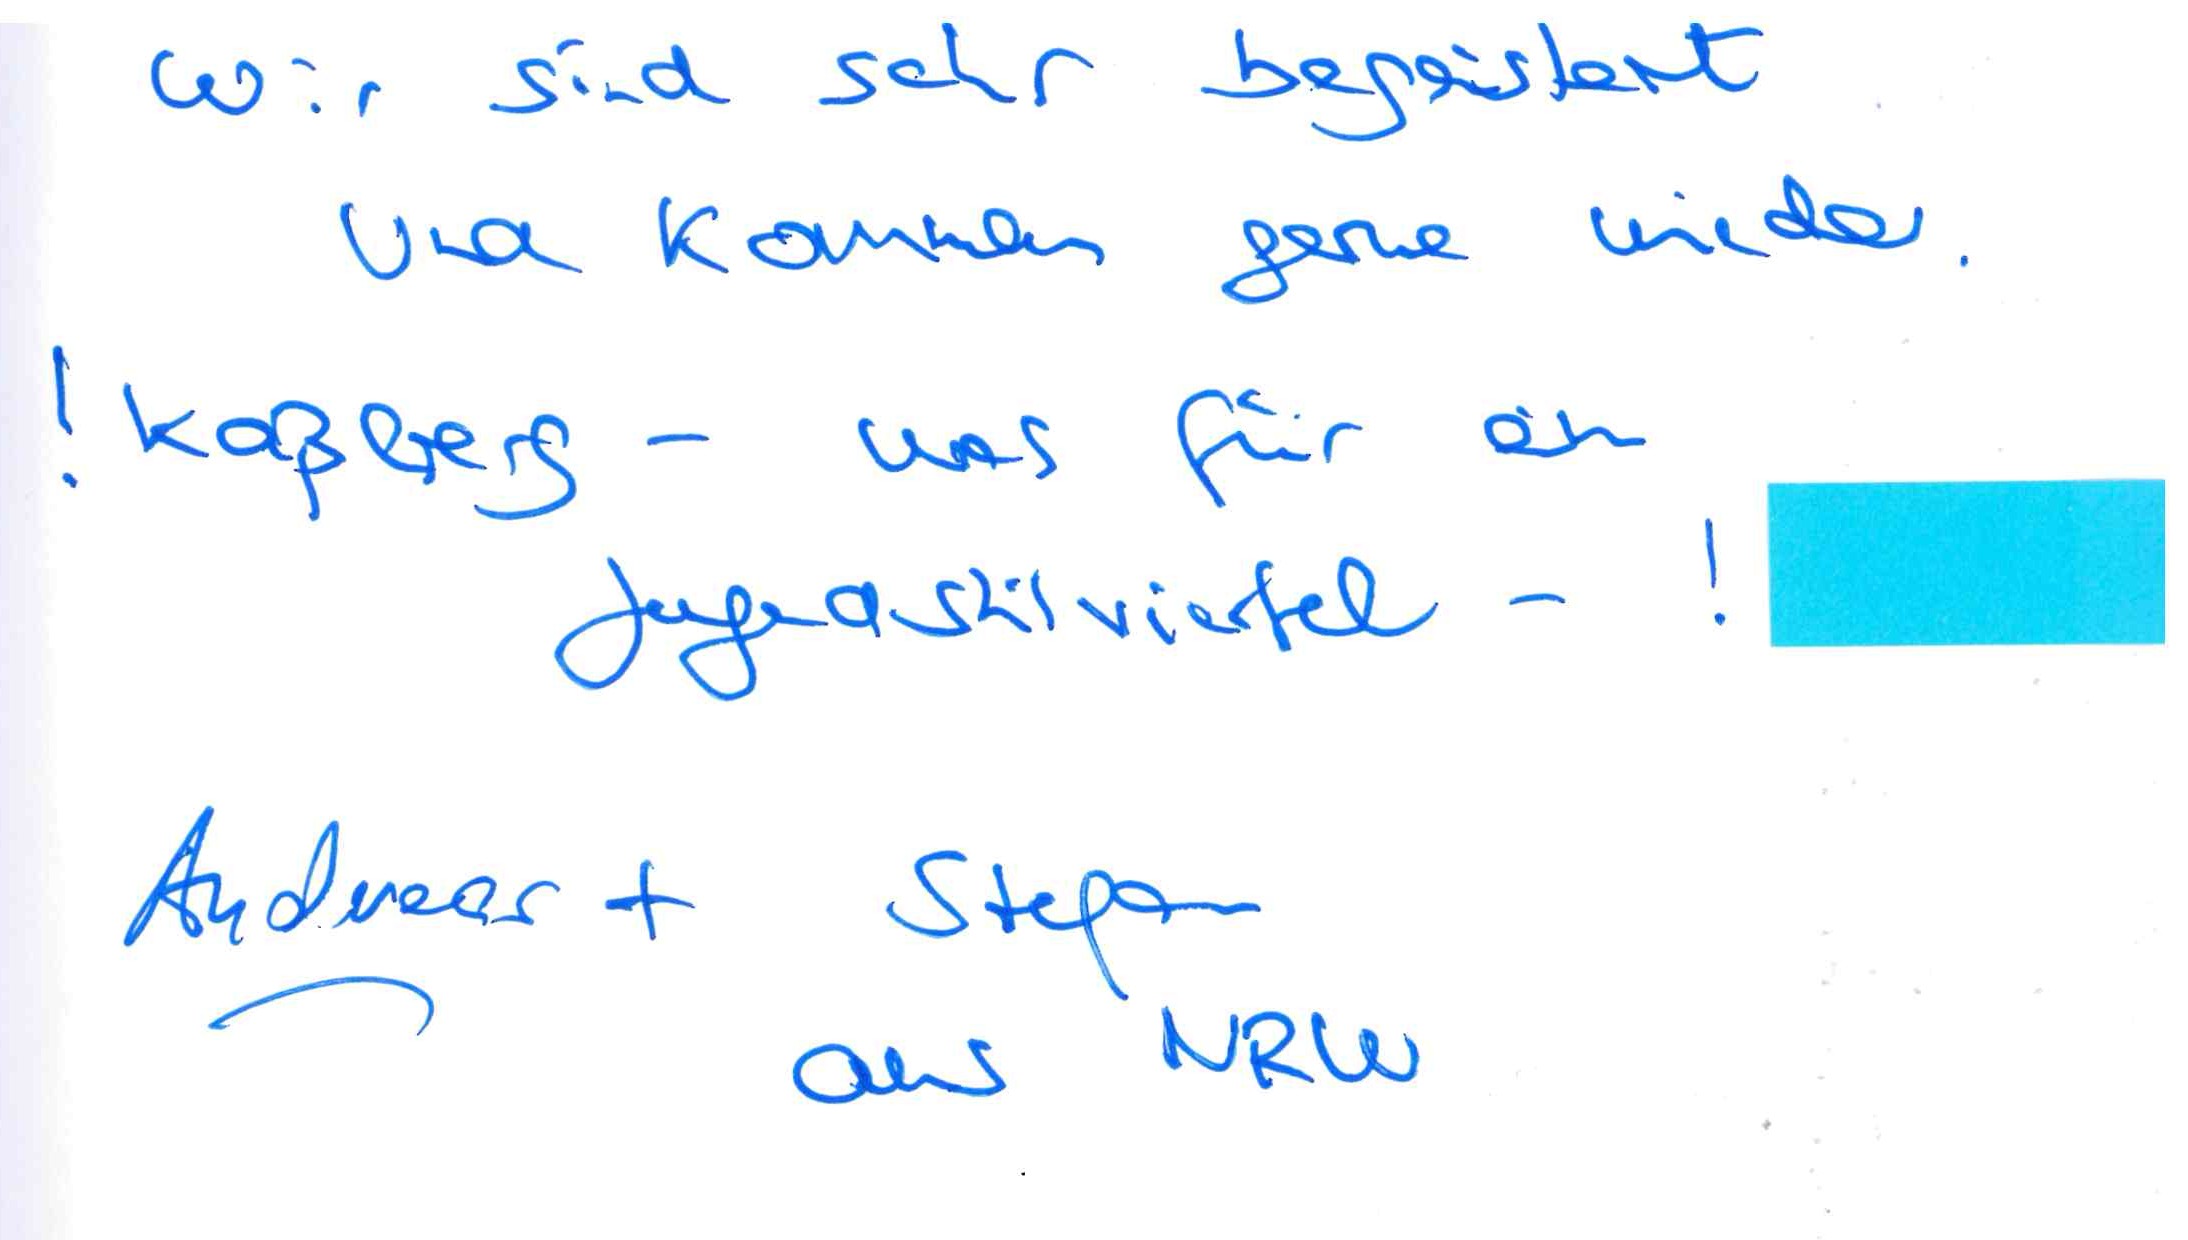 Wir sind sehr begeistert
und kommen gerne wieder.
! Kaßberg - was für ein
Jugendstilviertel - !
Andreas + Stefan
aus NRW